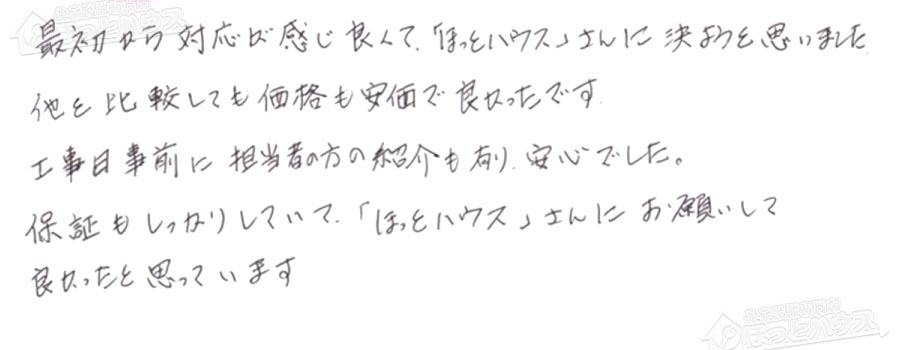 最初から対応が感じ良くて、「ほっとハウス」さんに決ようと思いました
他と比較しても価格も安価で良かったです.
工事日事前に担当者の方の紹介も有り、安心でした。
保証もしっかりしていて、「ほっとハウス」さんにお願いして
良かったと思っています
ほっとハウス